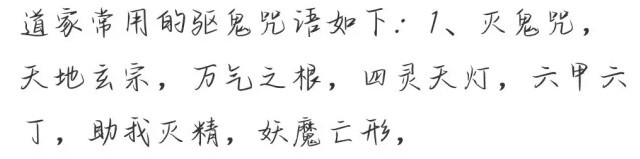 道家常用的驱鬼咒语如下：1、灭鬼咒，
天地玄宗，万气之根，四灵天灯，六甲六
丁，助我灭精，妖魔亡形，